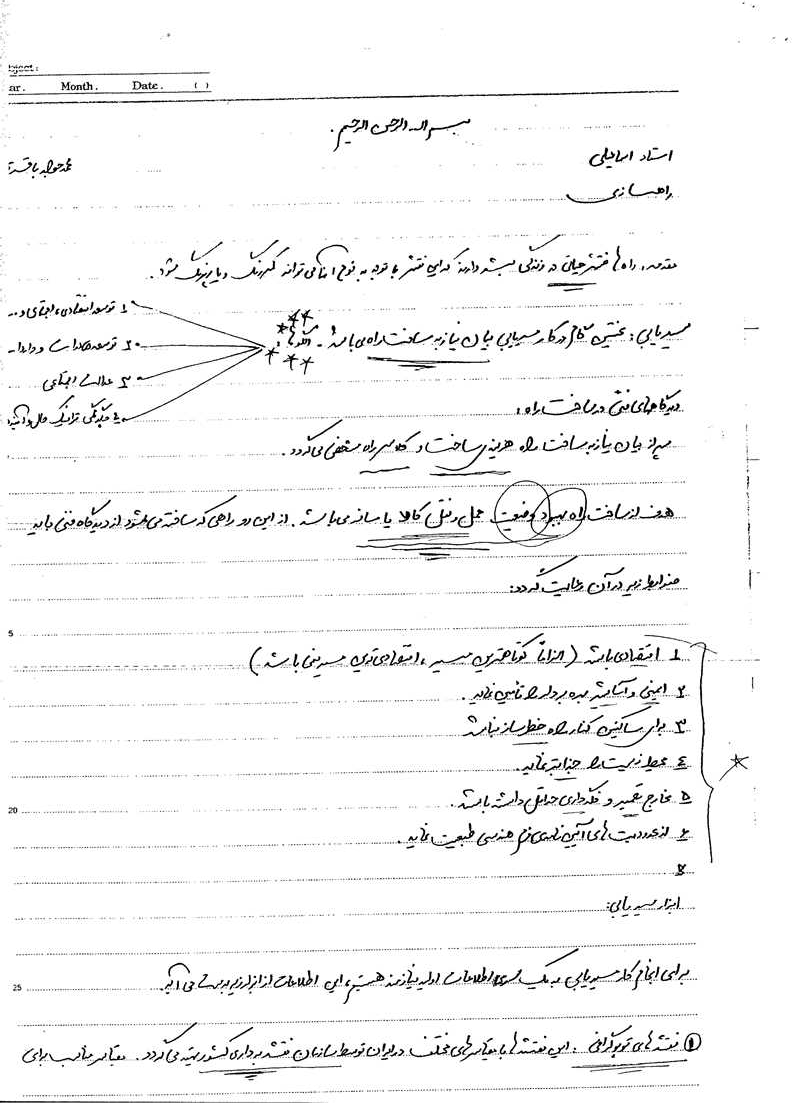 Month. Date. ( )
بسم الله الرحمن الرحیم.
استاد اسماعیلی
محمدجواد
راهسازی
مقدمه: راه ها نقش حیاتی در زندگی بشر دارند که این نقش با توجه به نوع آنها می تواند کمرنگ و یا پررنگ شود.
مسیریابی: نخستین گام در کار مسیریابی بیان نیاز به ساخت راه می باشد.
۱ توسعه اقتصادی، اجتماعی و..
۲ توسعه
۳ عدالت اجتماعی
۴ ترافیک حال و آینده
دیدگاههای فنی در ساخت راه:
پس از بیان نیاز به ساخت راه هزینه ی ساخت و کلاس راه مشخص می گردد.
هدف از ساخت راه بهبود وضعیت حمل و نقل کالا یا مسافر می باشد. از این رو راهی که ساخته می شود از دیدگاه فنی باید
ضوابط زیر در آن رعایت گردد:
5
۱ اقتصادی باشد (الزاماً کوتاهترین مسیر، اقتصادی ترین مسیر نمی باشد)
۲ ایمنی و آسایش بهره بردار را تامین نماید.
۳ برای ساکنین کنار راه خطرساز نباشد
۴ محیط زیست را نماید.
20
۵ مخارج تعمیر و نگهداری حداقل داشته باشد.
۶ از محدودیت های آیین نامه ی طرح هندسی تبعیت نماید.
ابزار مسیریابی:
25
برای انجام کار مسیریابی به یک سری اطلاعات اولیه نیازمند هستیم، این اطلاعات از ابزار زیر بدست می آید.
① نقشه های توپوگرافی. این نقشه ها با مقیاس های مختلف در ایران توسط سازمان نقشه برداری کشور تهیه می گردد. مقیاس مناسب برای